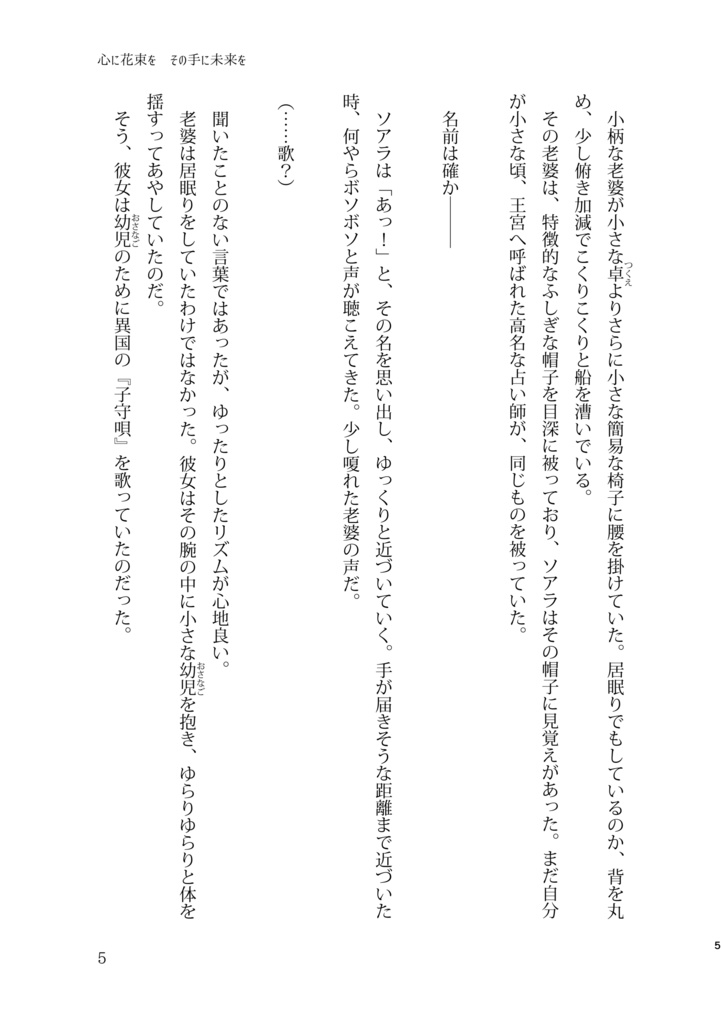 心に花束を　その手に未来を
　小柄な老婆が小さな卓よりさらに小さな簡易な椅子に腰を掛けていた。居眠りでもしているのか、背を丸
つくえ
め、少し俯き加減でこくりこくりと船を漕いでいる。
　その老婆は、特徴的なふしぎな帽子を目深に被っており、ソアラはその帽子に見覚えがあった。まだ自分
が小さな頃、王宮へ呼ばれた高名な占い師が、同じものを被っていた。
　名前は確か――――
　ソアラは「あっ！」と、その名を思い出し、ゆっくりと近づいていく。手が届きそうな距離まで近づいた
時、何やらボソボソと声が聴こえてきた。少し嗄れた老婆の声だ。
（……歌？）
　聞いたことのない言葉ではあったが、ゆったりとしたリズムが心地良い。
　老婆は居眠りをしていたわけではなかった。彼女はその腕の中に小さな幼児を抱き、ゆらりゆらりと体を
おさなご
揺すってあやしていたのだ。
　そう、彼女は幼児のために異国の『子守唄』を歌っていたのだった。
おさなご
5
5